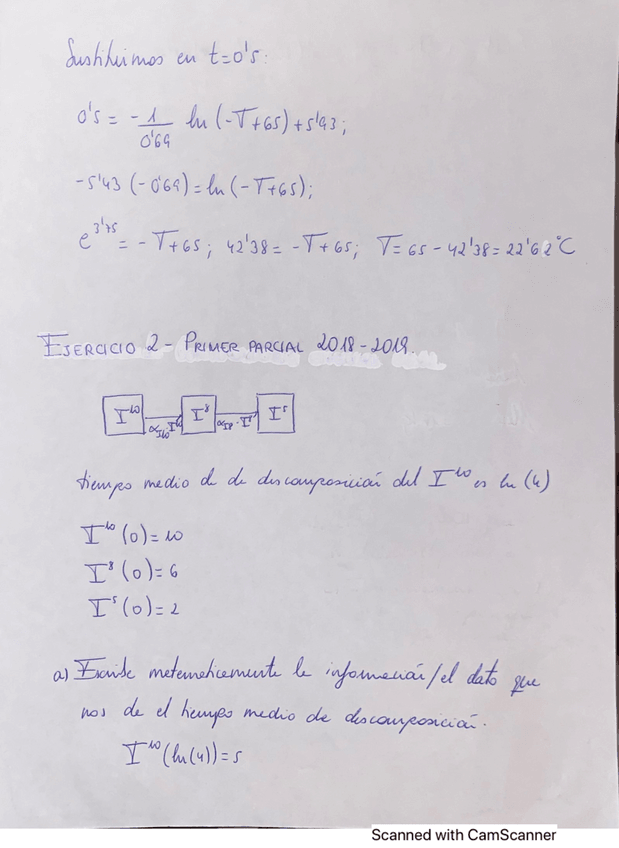 Sustituimos en t=0's:
0's = - 1/0'69 ln (-T+65) + 5'93;
-5'43 (-0'69) = ln (-T+65);
e^3'75 = -T+65; 42'38 = -T+65; T = 65 - 42'38 = 22'62°C
EJERCICIO 2 - PRIMER PARCIAL 2018-2019.
I^10 I^8 I^5
α_I10·I^10 α_I8·I^8
tiempo medio de de descomposición del I^10 es ln (4)
I^10 (0) = 10
I^8 (0) = 6
I^5 (0) = 2
a) Escribe matemáticamente la información/el dato que
nos da el tiempo medio de descomposición.
I^10 (ln(4)) = 5
Scanned with CamScanner